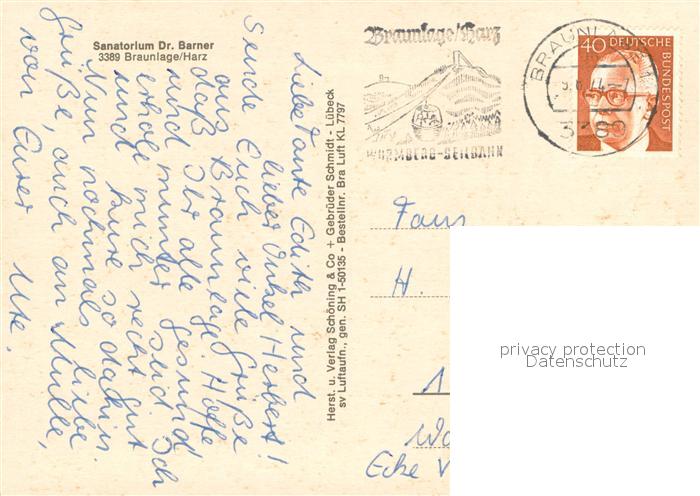 Sanatorium Dr. Barner
3389 Braunlage/Harz
Liebe Tante Edith und
lieber Onkel Herbert!
Sende Euch viele Grüße
aus Braunlage. Hoffe
daß Ihr alle gesund
und munter seid. Ich
erhole mich recht gut
und kure so dahin.
Nun nochmals liebe
Grüße, auch an Mulle,
von Eurer Ute.
Herst. u. Verlag Schöning & Co + Gebrüder Schmidt - Lübeck
sv Luftaufn., gen. SH 1-50135 - Bestellnr. Bra Luft KL 7797
Braunlage/Harz
WURMBERG-SEILBAHN
BRAUNLAGE
40 DEUTSCHE
BUNDESPOST
Fam
H.
1
Ecke
privacy protection
Datenschutz